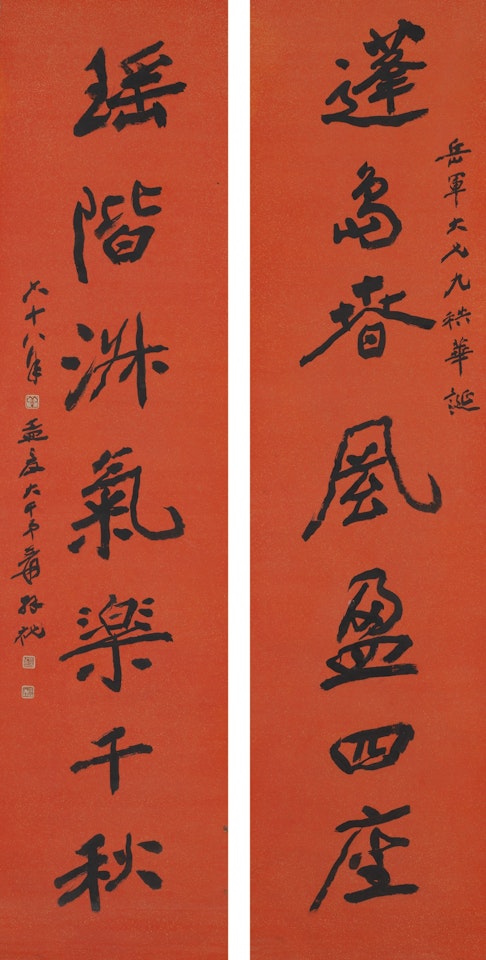 岳軍大兄九秩華誕
蓬島春風盈四座
瑤階淑氣楽千秋
六十八年孟夏大千弟爰拜祝